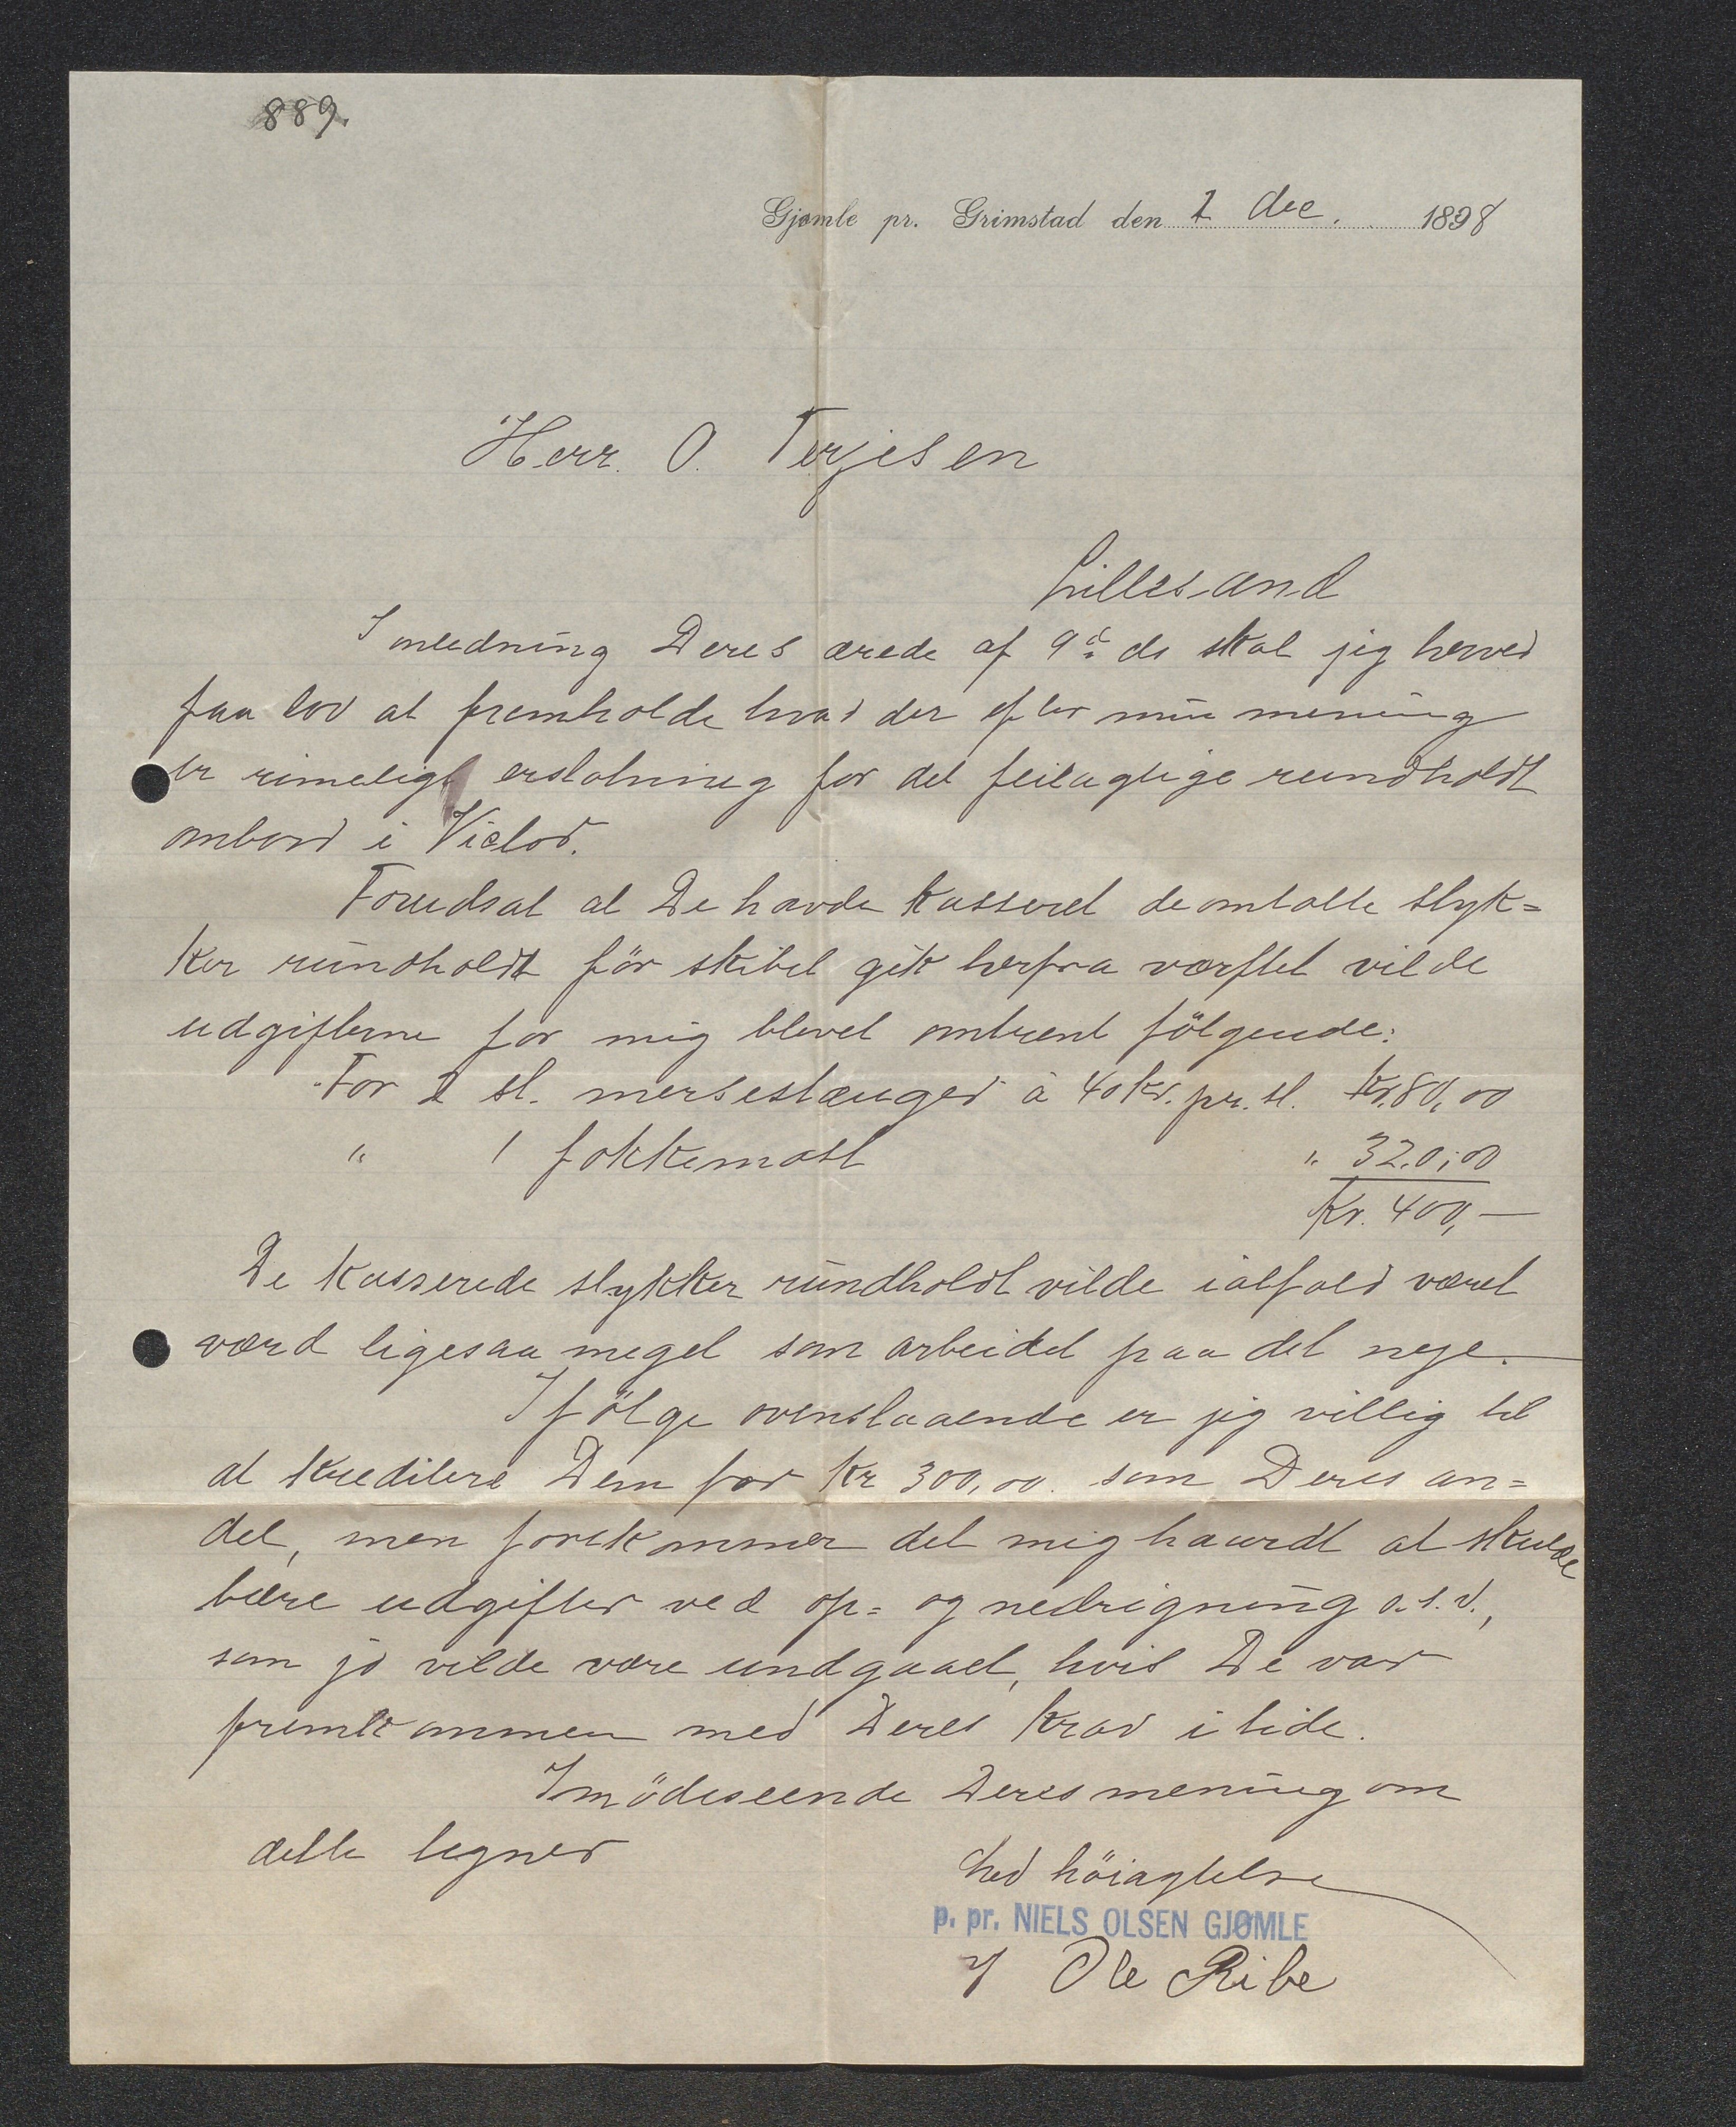 889.
Gjømle pr. Grimstad den 1 dec. 1898
Herr. O. Terjesen
Lillesand
I anledning Deres ærede af 9d: ds skal jeg herved
faa lov at fremholde hvad der efter min mening
er rimelig erstatning for det feilagtige rundholdt
ombord i Victor.
Forudsat at De havde kasseret de omtalte styk=
ker rundholdt för skibet gik herfra værftet vilde
udgifterne for mig blevet omtrent fölgende:
For 2 st. mersestænger à 40 kr. pr. st. Kr. 80,00
" 1 fokkemast " 320,00
Kr. 400,—
De kasserede stykker rundholdt vilde ialfald været
værd ligesaa meget som arbeidet paa det nye.
Ifölge ovenstaaende er jeg villig til
at kreditere Dem for Kr 300,00. som Deres an=
del, men forekommer det mig haardt at skulde
bære udgifter ved op= og nedrigning o.s.v.,
som jo vilde være undgaaet, hvis De var
fremkommen med Deres krav i tide.
Imödeseende Deres mening om
dette tegner
Med höiagtelse
p. pr. NIELS OLSEN GJØMLE
Ole Ribe